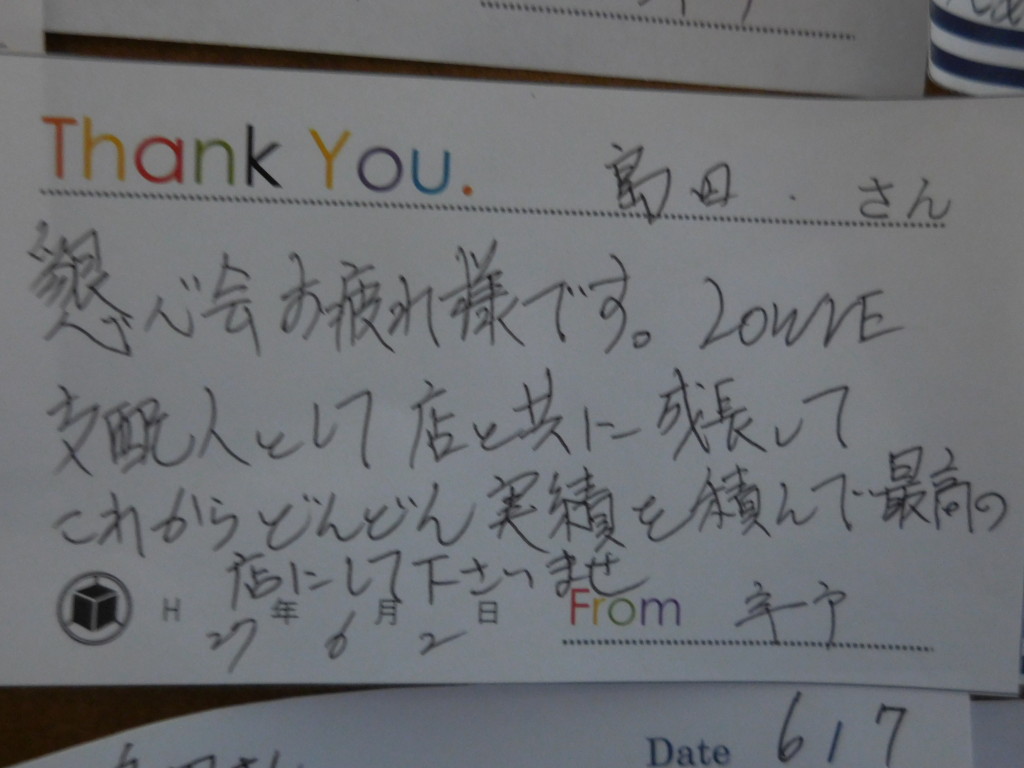 Thank You. 島田 さん
懇んで会お疲れ様です。LOUVE
支配人として店と共に成長して
これからどんどん実績を積んで最高の
店にして下さいませ
H 27年 6月 2日 From
Date 6/7